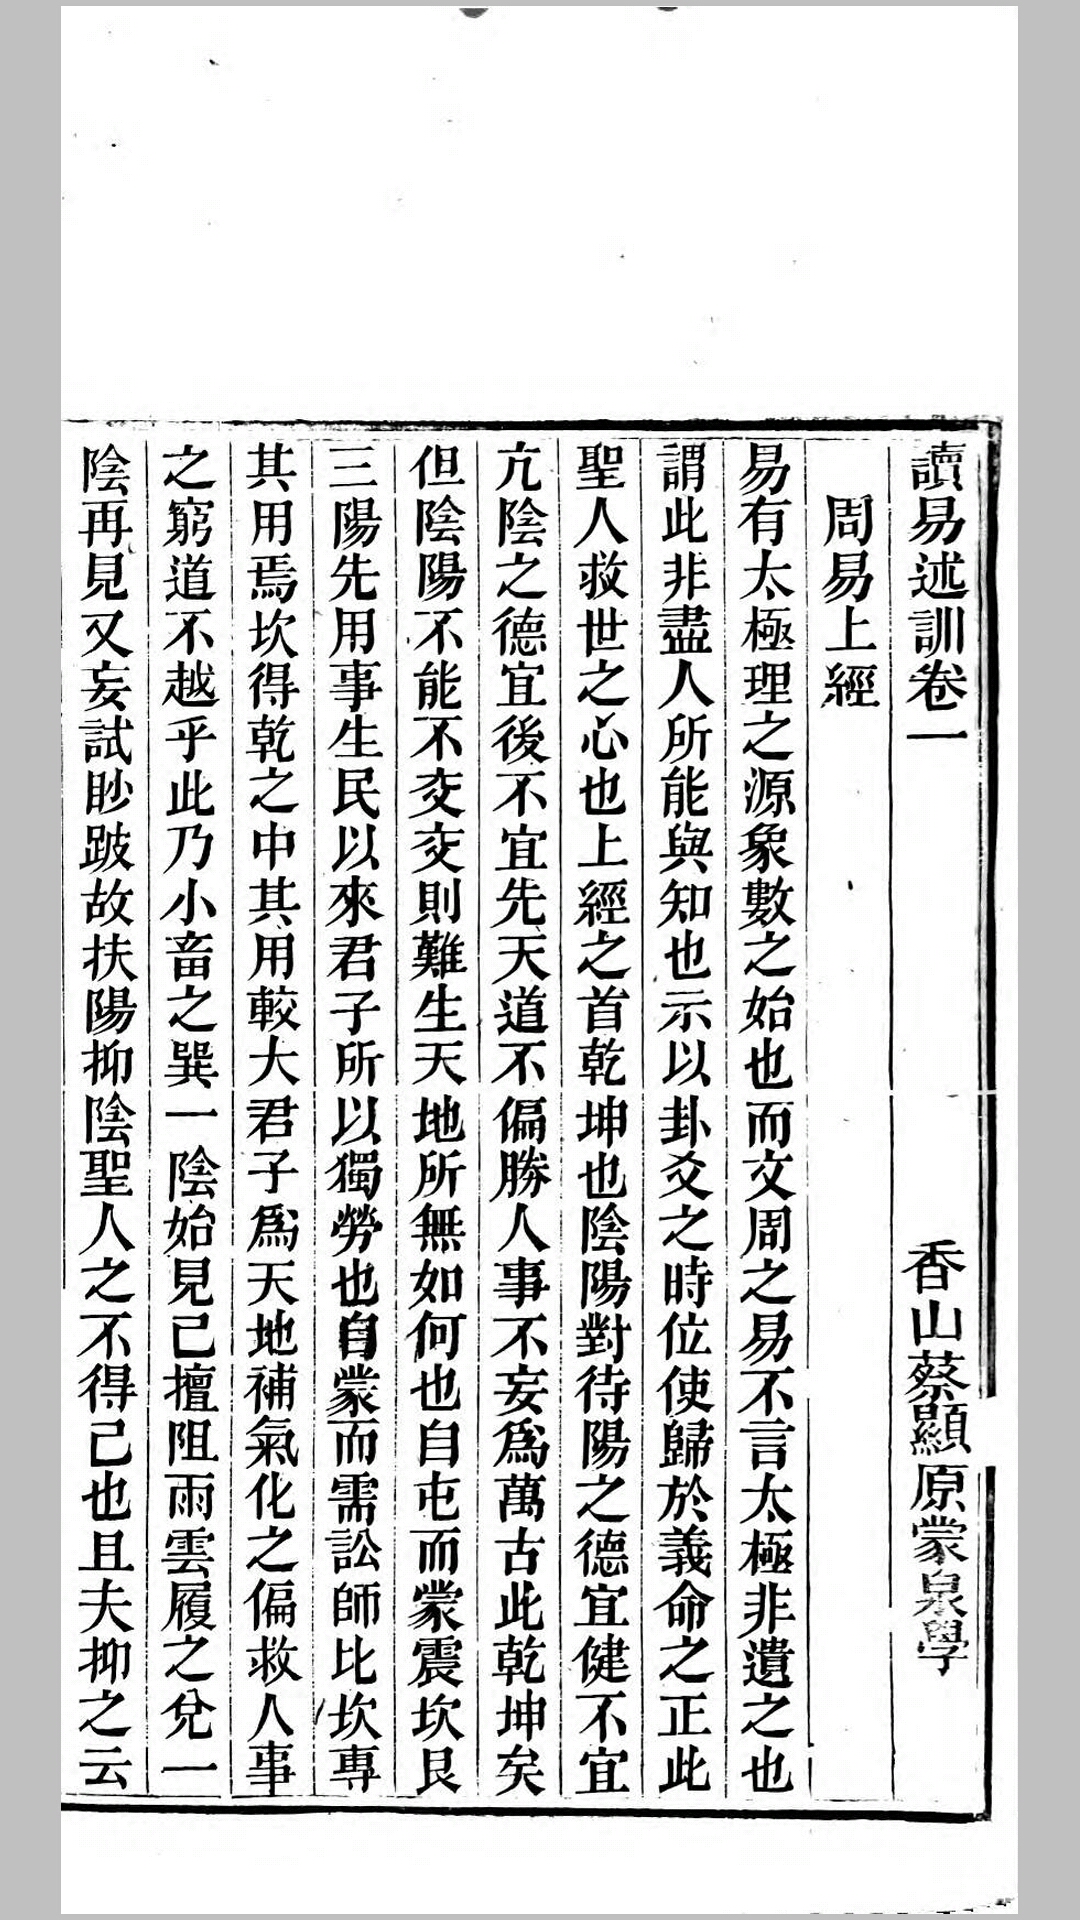 讀易述訓卷一　香山蔡顯原蒙泉學
周易上經
易有太極理之源象數之始也而文周之易不言太極非遺之也
謂此非盡人所能與知也示以卦爻之時位使歸於義命之正此
聖人救世之心也上經之首乾坤也陰陽對待陽之德宜健不宜
亢陰之德宜後不宜先天道不偏勝人事不妄爲萬古此乾坤矣
但陰陽不能不交交則難生天地所無如何也自屯而蒙震坎艮
三陽先用事生民以來君子所以獨勞也自蒙而需訟師比坎專
其用焉坎得乾之中其用較大君子爲天地補氣化之偏救人事
之窮道不越乎此乃小畜之巽一陰始見已擅阻雨雲履之兌一
陰再見又妄試眇跛故扶陽抑陰聖人之不得已也且夫抑之云